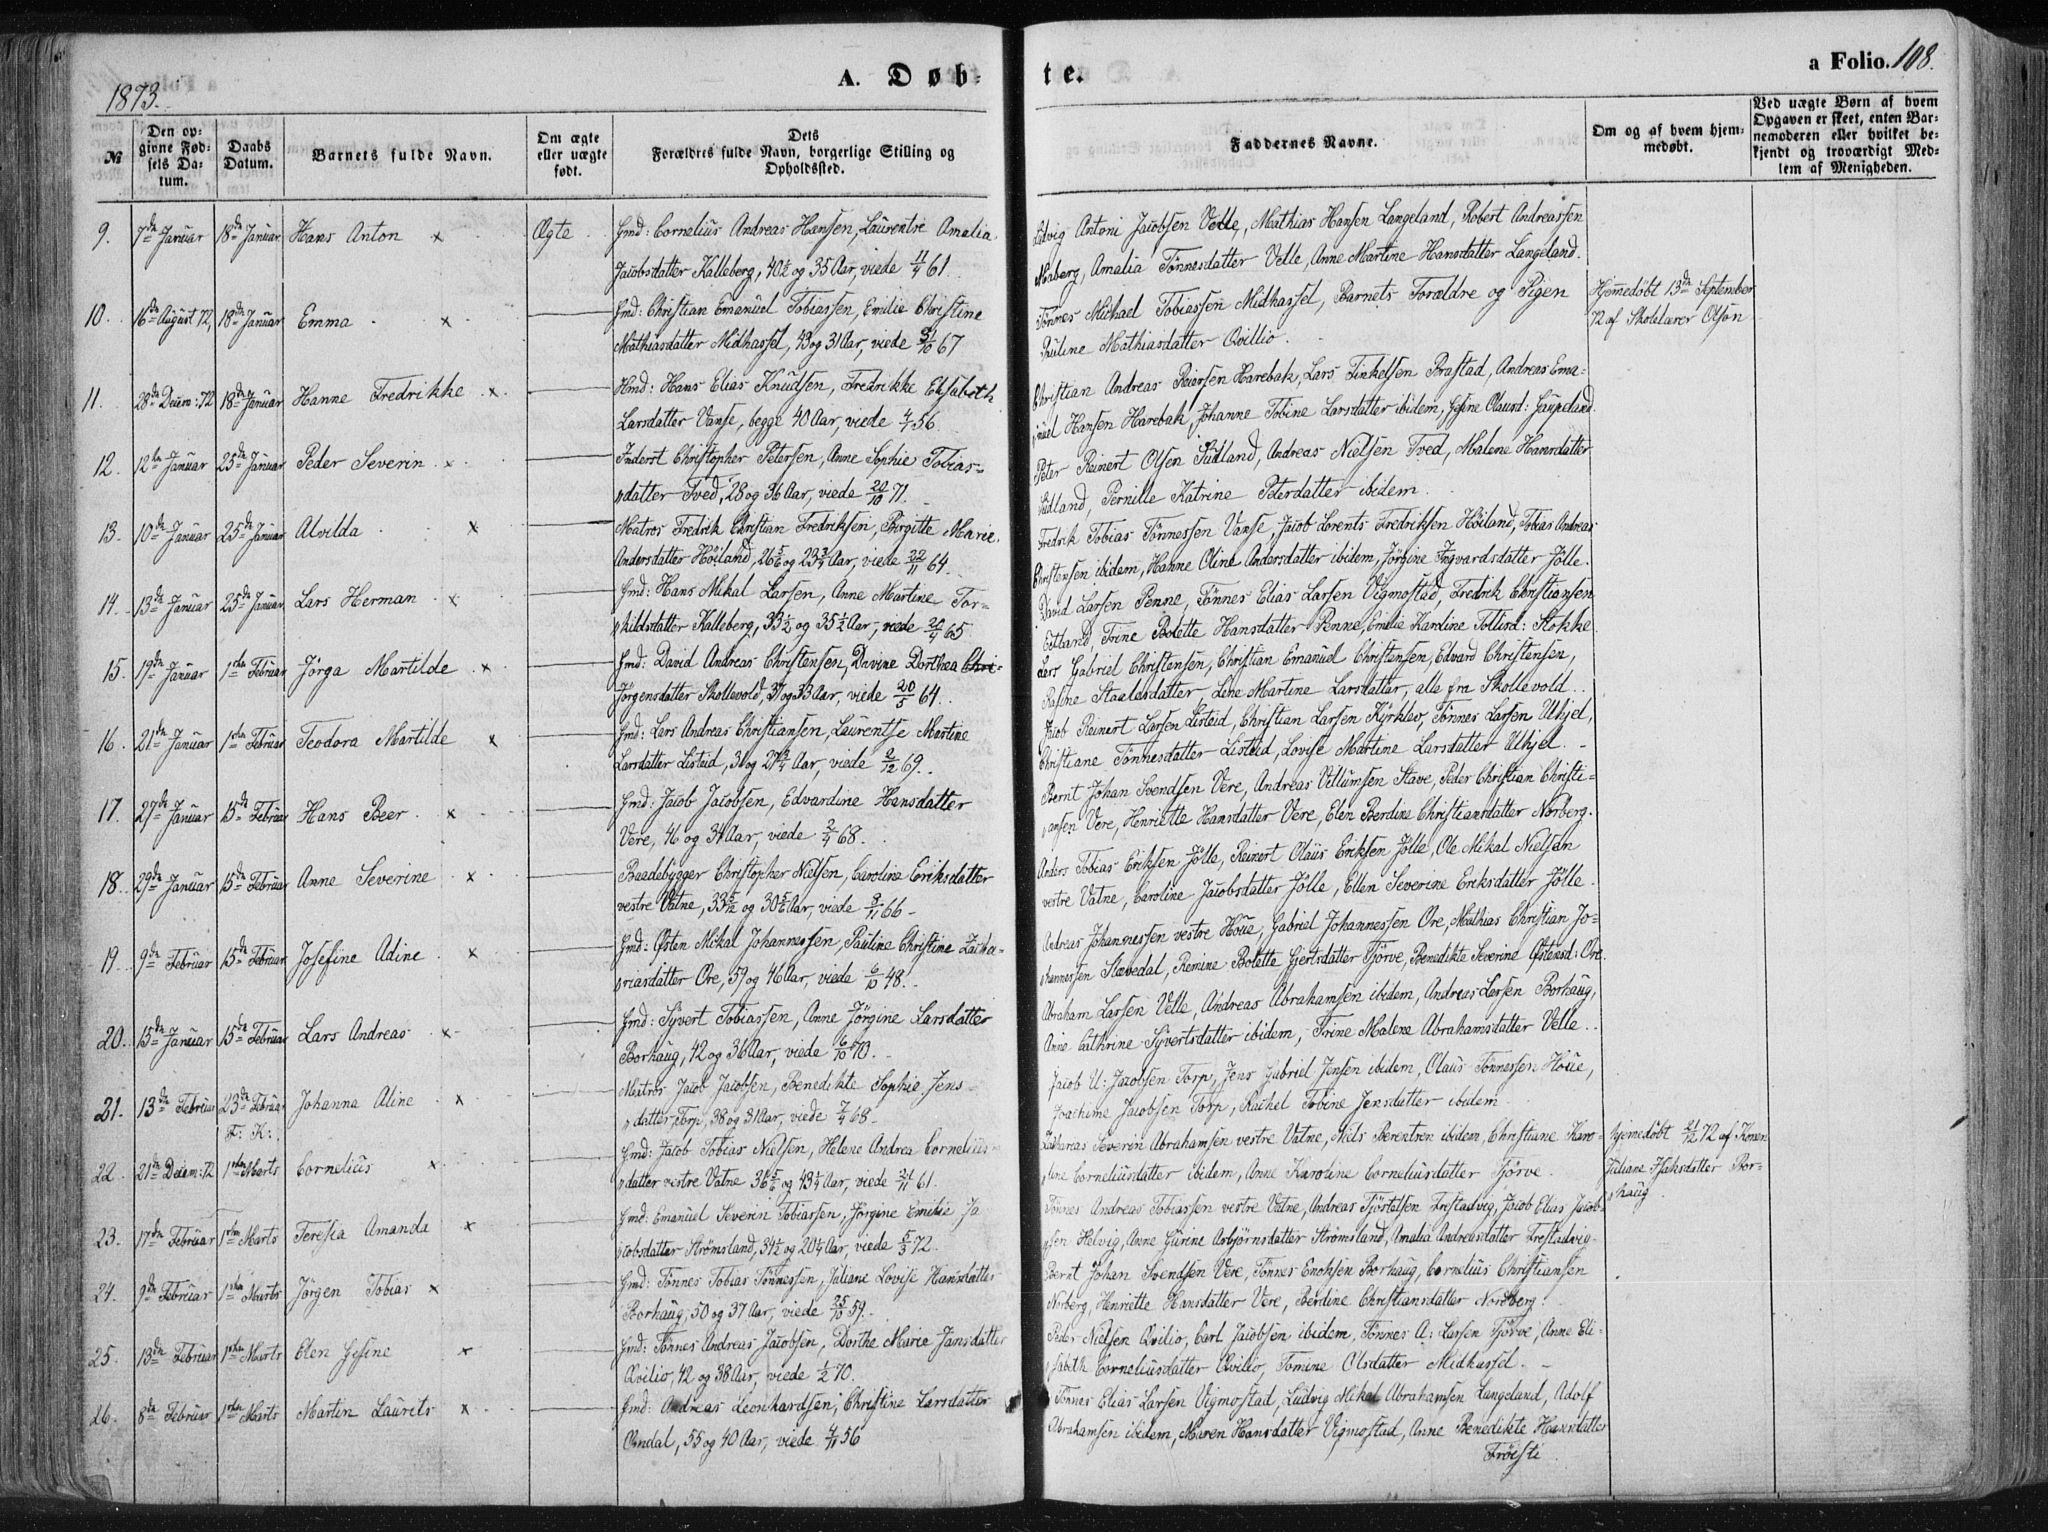 1873.
A. Døb-
te.
a Folio. 108.
№
Den op-
givne Fød-
sels Da-
tum.
Daabs
Datum.
Barnets fulde Navn.
Om ægte
eller uægte
født.
Dets
Forældres fulde Navn, borgerlige Stilling og
Opholdssted.
Faddernes Navne.
Om og af hvem hjem-
medøbt.
Ved uægte Børn af hvem
Opgaven er skeet, enten Bar-
nemoderen eller hvilket be-
kjendt og troværdigt Med-
lem af Menigheden.
9. 7de Januar 18de Januar Hans Anton x Ægte Gmd: Cornelius Andreas Hansen, Laurentre Amalia
Jacobsdatter Kalleberg, 40½ og 35 Aar, viede 11/4 61.
Ludvig Antoni Jacobsen Velle, Mathias Hansen Langeland, Robert Andreassen
Norberg, Amalia Tønnesdatter Velle, Anne Martine Hansdatter Langeland.
10. 16de August 72, 18de Januar Emma x Gmd: Christian Emanuel Tobiassen, Emilie Christine
Mathiasdatter Midhassel, 43 og 31 Aar, viede 67
Tönnes Michael Tobiassen Midhassel, Barnets Forældre og Pigen
Pauline Mathiasdatter Qvillio.
Hjemmedøbt 13de September
72 af Skolelærer Olson
11. 28de Decem: 72 18de Januar Hanne Fredrikke x Hmd: Hans Elias Knudsen, Fredrikke Elisabeth
Larsdatter Vanse, begge 40 Aar, viede 4/7 56.
Christian Andreas Reiersen Harebak, Lars Tinkelsen Brastad, Andreas Ema-
nuel Hansen Harebak, Johanne Tobine Larsdatter ibidem, Gesine Olausd: Jaupeland.
12. 12te Januar 25de Januar Peder Severin x Inderst Christopher Petersen, Anne Sophie Tobias-
datter Tved, 28 og 36 Aar, viede 20/10 71.
Peter Reinert Olsen Sudland, Andreas Nielsen Tved, Malene Hansdatter
Sudland, Pernille Katrine Petersdatter ibidem
13. 10de Januar 25de Januar Alvilda x Matros Fredrik Christian Fredriksen, Birgitte Marie
Andersdatter Höiland, 26 5/6 og 23¾ Aar, viede 22/11 64.
Fredrik Tobias Tönnessen Vanse, Jacob Lorents Fredriksen Höiland, Tobias Andreas
Christensen ibidem, Hanne Oline Andersdatter ibidem, Jörgine Ingvardsdatter Jölle.
14. 13de Januar 25de Januar Lars Herman x Gmd: Hans Mikal Larsen, Anne Martine Tor-
kildsdatter Kalleberg, 33½ og 35½ Aar, viede 20/4 65
David Larsen Penne, Tönnes Elias Larsen Vigmostad, Fredrik Christiansen
Eitland, Trine Bolette Hansdatter Penne, Emilie Kardine Tollisd: Stokke
15. 19de Januar 1ste Februar Jörga Martilde x Gmd: David Andreas Christensen, Davine Dorthea Chri-
Jörgensdatter Skollevold, 37 og 33 Aar, viede 20/5 64.
Lars Gabriel Christensen, Christian Emanuel Christensen, Edvard Christensen,
Rasine Staalesdatter, Lene Martine Larsdatter, alle fra Skollevold.
16. 21de Januar 1ste Februar Teodora Martilde x Gmd: Lars Andreas Christiansen, Laurentse Martine
Larsdatter Listeid, 31 og 27¾ Aar, viede 2/12 69.
Jacob Reinert Larsen Listeid, Christian Larsen Kjörklev, Tönnes Larsen Ulhjel,
Christiane Tönnesdatter Listeid, Lovise Martine Larsdatter Ulhjel.
17. 27de Januar 15de Februar Hans Beer x Gmd: Jacob Jacobsen, Edvardine Hansdatter
Vere, 46 og 31 Aar, viede 2/4 68.
Bernt Johan Svendsen Vere, Andreas Villumsen Stave, Peder Christian Christi-
ansen Vere, Henriette Hansdatter Vere, Elen Berdine Christiansdatter Norberg.
18. 29de Januar 15de Februar Anne Severine x Baadebygger Christopher Nielsen, Caroline Eriksdatter
vestre Vatne, 33 5/12 og 30 5/6 Aar, viede 8/11 66
Anders Tobias Eriksen Jölle, Reinert Olaus Eriksen Jölle, Ole Mikal Nielsen
vestre Vatne, Caroline Jacobsdatter Jölle, Ellen Severine Eriksdatter Jölle.
19. 9de Februar 15de Februar Josefine Adine x Gmd: Østen Mikal Johannessen, Pauline Christine Zacha-
riasdatter Ore, 59 og 46 Aar, viede 6/10 48.
Andreas Johannessen vestre Houe, Gabriel Johannessen Ore, Mathias Christian Jo-
hannessen Stavedal, Remine Bolette Gjertsdatter Tjörve, Benedikte Severine Østensd: Ore.
20. 15de Januar 15de Februar Lars Andreas x Gmd: Syvert Tobiassen, Anne Jörgine Larsdatter
Borhaug, 42 og 36 Aar, viede 6/10 70.
Abraham Larsen Velle, Andreas Abrahamsen ibidem, Andreas Larsen Borhaug,
Anne Cathrine Syvertsdatter ibidem, Trine Malene Abrahamsdatter Velle.
21. 13de Februar 23de Februar Johanna Aline x Matros Jacob Jacobsen, Benedikte Sophie Jens-
F: K: datter, Torp, 38 og 31 Aar, viede 7/4 68.
Jacob U: Jacobsen Torp, Jens Gabriel Jensen ibidem, Olaus Tönnessen Houe,
Joachime Jacobsen Torp, Rachel Tobine Jensdatter ibidem
22. 21de Decem: 72 1ste Marts Cornelius x Gmd: Jacob Tobias Nielsen, Helene Andrea Cornelius-
datter vestre Vatne 36 5/6 og 43¼ Aar, viede 21/11 61.
Zacharias Severin Abrahamsen vestre Vatne, Niels Berentsen ibidem, Christiane Karo-
line Corneliusdatter ibidem, Anne Karoline Corneliusdatter Tjörve.
Hjemedöbt 21/12 72 af Konen
Juliane Isaksdatter Bor-
haug
23. 17de Februar 1ste Marts Teresia Amanda x Gmd: Emanuel Severin Tobiassen, Jörgine Emilie Ja
cobsdatter Strömsland, 34½ og 20¼ Aar, viede 5/3 72.
Tönnes Andreas Tobiassen vestre Vatne, Andreas Tjöstelsen Frestadvig, Jacob Elias Jacob-
sen Helvig, Anne Gurine Asbjörnsdatter Strömsland, Amalia Andreasdatter Frestadvig.
24. 9de Februar 1ste Marts Jörgen Tobias x Gmd: Tönnes Tobias Tönnessen, Juliane Lovise Hansdatter
Borhaug, 50 og 37 Aar, viede 25/11 59.
Bernt Johan Svendsen Vere, Tönnes Enoksen Borhaug, Cornelius Christiansen
Norberg, Henriette Hansdatter Vere, Berdine Christiansdatter Nordberg.
25. 13de Februar 1ste Marts Elen Gesine x Gmd: Tönnes Andreas Jacobsen, Dorthe Marie Jansdatter
Qvilio, 42 og 38 Aar, viede ½ 70.
Peder Nielsen Qvilio, Carl Jacobsen ibidem, Tönnes A: Larsen Tjörve, Anne Eli-
sabith Corneliusdatter Qvilio, Tomine Olsdatter Midhassel.
26. 8de Februar 1ste Marts Martin Laurits x Gmd: Andreas Leonhardsen, Christine Larsdatter
Omdal, 55 og 40 Aar, viede 7/11 56
Tönnes Elias Larsen Vigmostad, Ludvig Mikal Abrahamsen Langeland, Adolf
Abrahamsen ibidem, Maren Hansdatter Vigmostad, Anne Benedikte Hansdatter
Tröesti